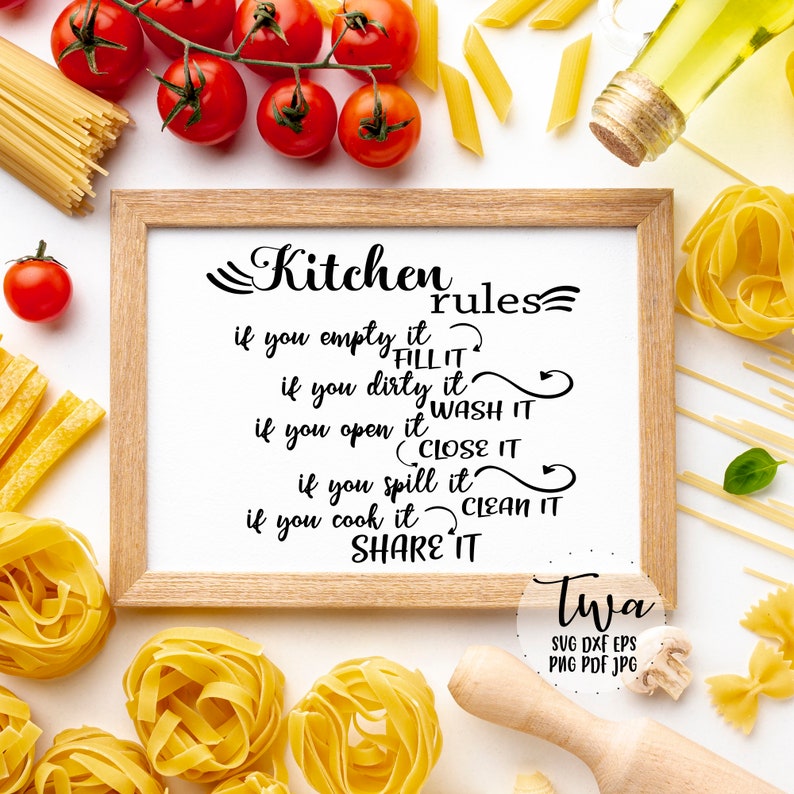 Kitchen
rules
if you empty it
FILL IT
if you dirty it
WASH IT
if you open it
CLOSE IT
if you spill it
CLEAN IT
if you cook it
SHARE IT
TWA
SVG DXF EPS
PNG PDF JPG